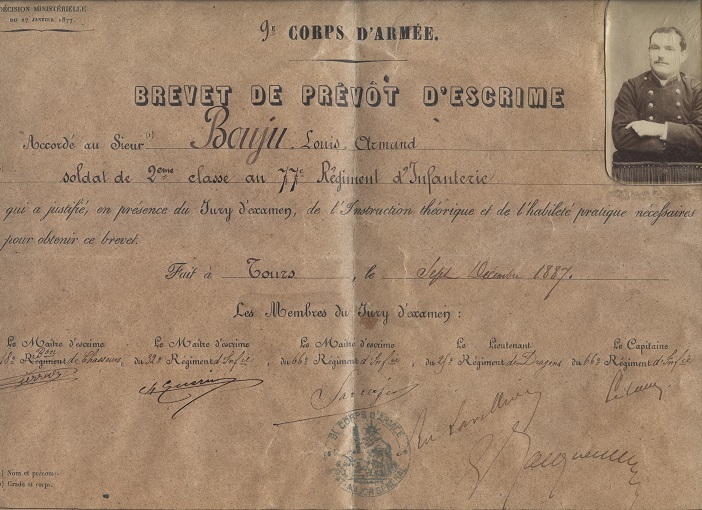 DÉCISION MINISTÉRIELLE
DU 27 JANVIER 1877.
9E CORPS D'ARMÉE.
BREVET DE PRÉVÔT D'ESCRIME
Accordé au Sieur (1) Bauju Louis Armand
soldat de 2eme classe au 77e Régiment d'Infanterie
qui a justifié, en présence du Jury d'examen, de l'Instruction théorique et de l'habileté pratique nécessaires
pour obtenir ce brevet.
Fait à Tours, le Sept Décembre 1887.
Les Membres du Jury d'examen :
Le Maître d'escrime Le Maître d'escrime Le Maître d'escrime Le Lieutenant Le Capitaine
Régiment de Chasseurs, du 32e Régiment d'Inf.ie, du 66e Régiment d'Inf.ie, du 25e Régiment de Dragons du 66e Régiment d'Inf.ie
CORPS D'ARMÉE
) Nom et prénoms.
) Grade et corps.